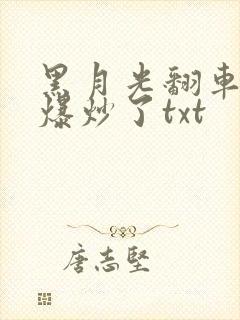 黑月光翻車
爆炒了txt
唐志堅